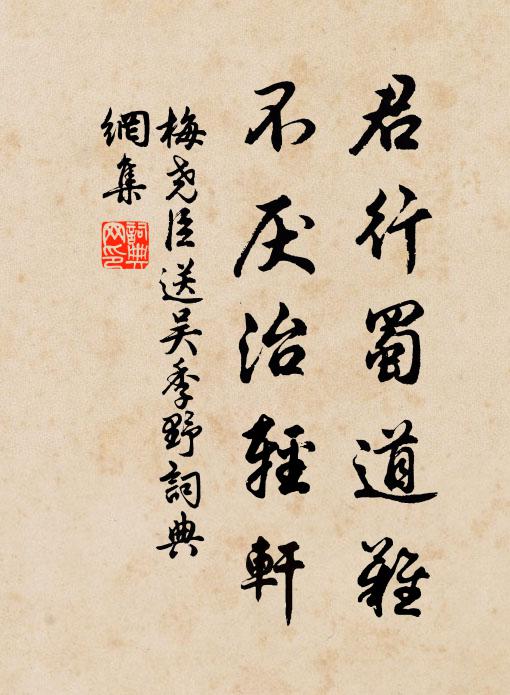 君行蜀道難
不厌治輕軒
梅尧臣送吴季野詞典
網集
詞典
网印